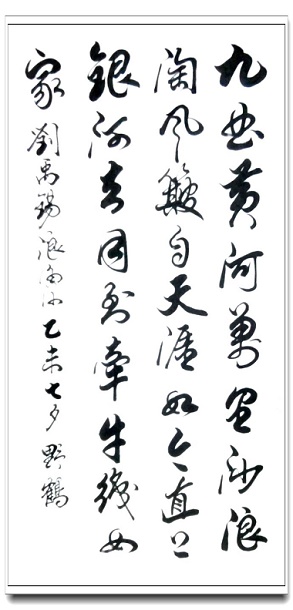 九曲黄河萬里沙浪
淘風簸自天涯如今直上
銀河去同到牽牛織女
家 劉禹錫浪淘沙 乙未七夕 野鶴